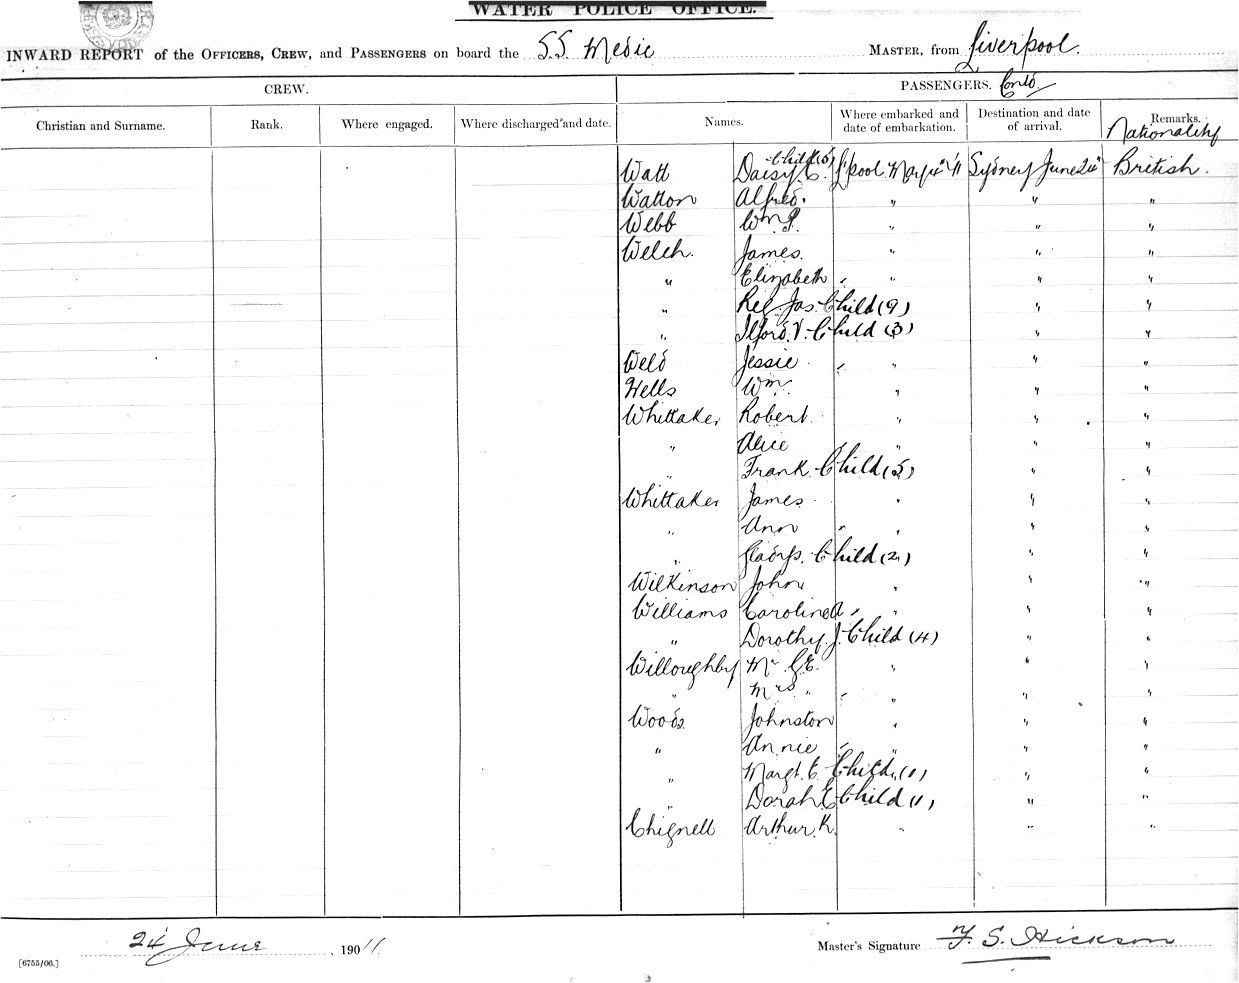 WATER POLICE OFFICE.
INWARD REPORT of the OFFICERS, CREW, and PASSENGERS on board the S.S. Medic MASTER, from Liverpool.
CREW. PASSENGERS. Contd
Christian and Surname. Rank. Where engaged. Where discharged and date. Names. Where embarked and date of embarkation. Destination and date of arrival. Remarks. Nationality
Watt Daisy E. Child (5) L'pool. May 4" '11 Sydney June 24" British.
Watton Alfred. " " "
Webb Wm P. " " "
Welch. James. " " "
" Elizabeth " " " "
" Reg. Jas. Child (9) " "
" Ilford. V. Child (3) " "
Weld Jessie " " " "
Wells Wm. " " "
Whittaker Robert. " " "
" Alice " " " "
" Frank. Child (5) " "
Whittaker James " " "
" Ann " " " "
" Gladys. Child (2) " "
Wilkinson John " " "
Williams Caroline A " " " "
" Dorothy J. Child (4) " "
Willoughby Mr G.E. " " "
" Mrs " " " " "
Woods Johnston " " "
" Annie " " " "
" Margt. E. Child (1) " "
" Dorah E Child (1) " "
Chignell Arthur K. " " "
24 June , 190 11 Master's Signature F. S. Hickson
[6755/06.]